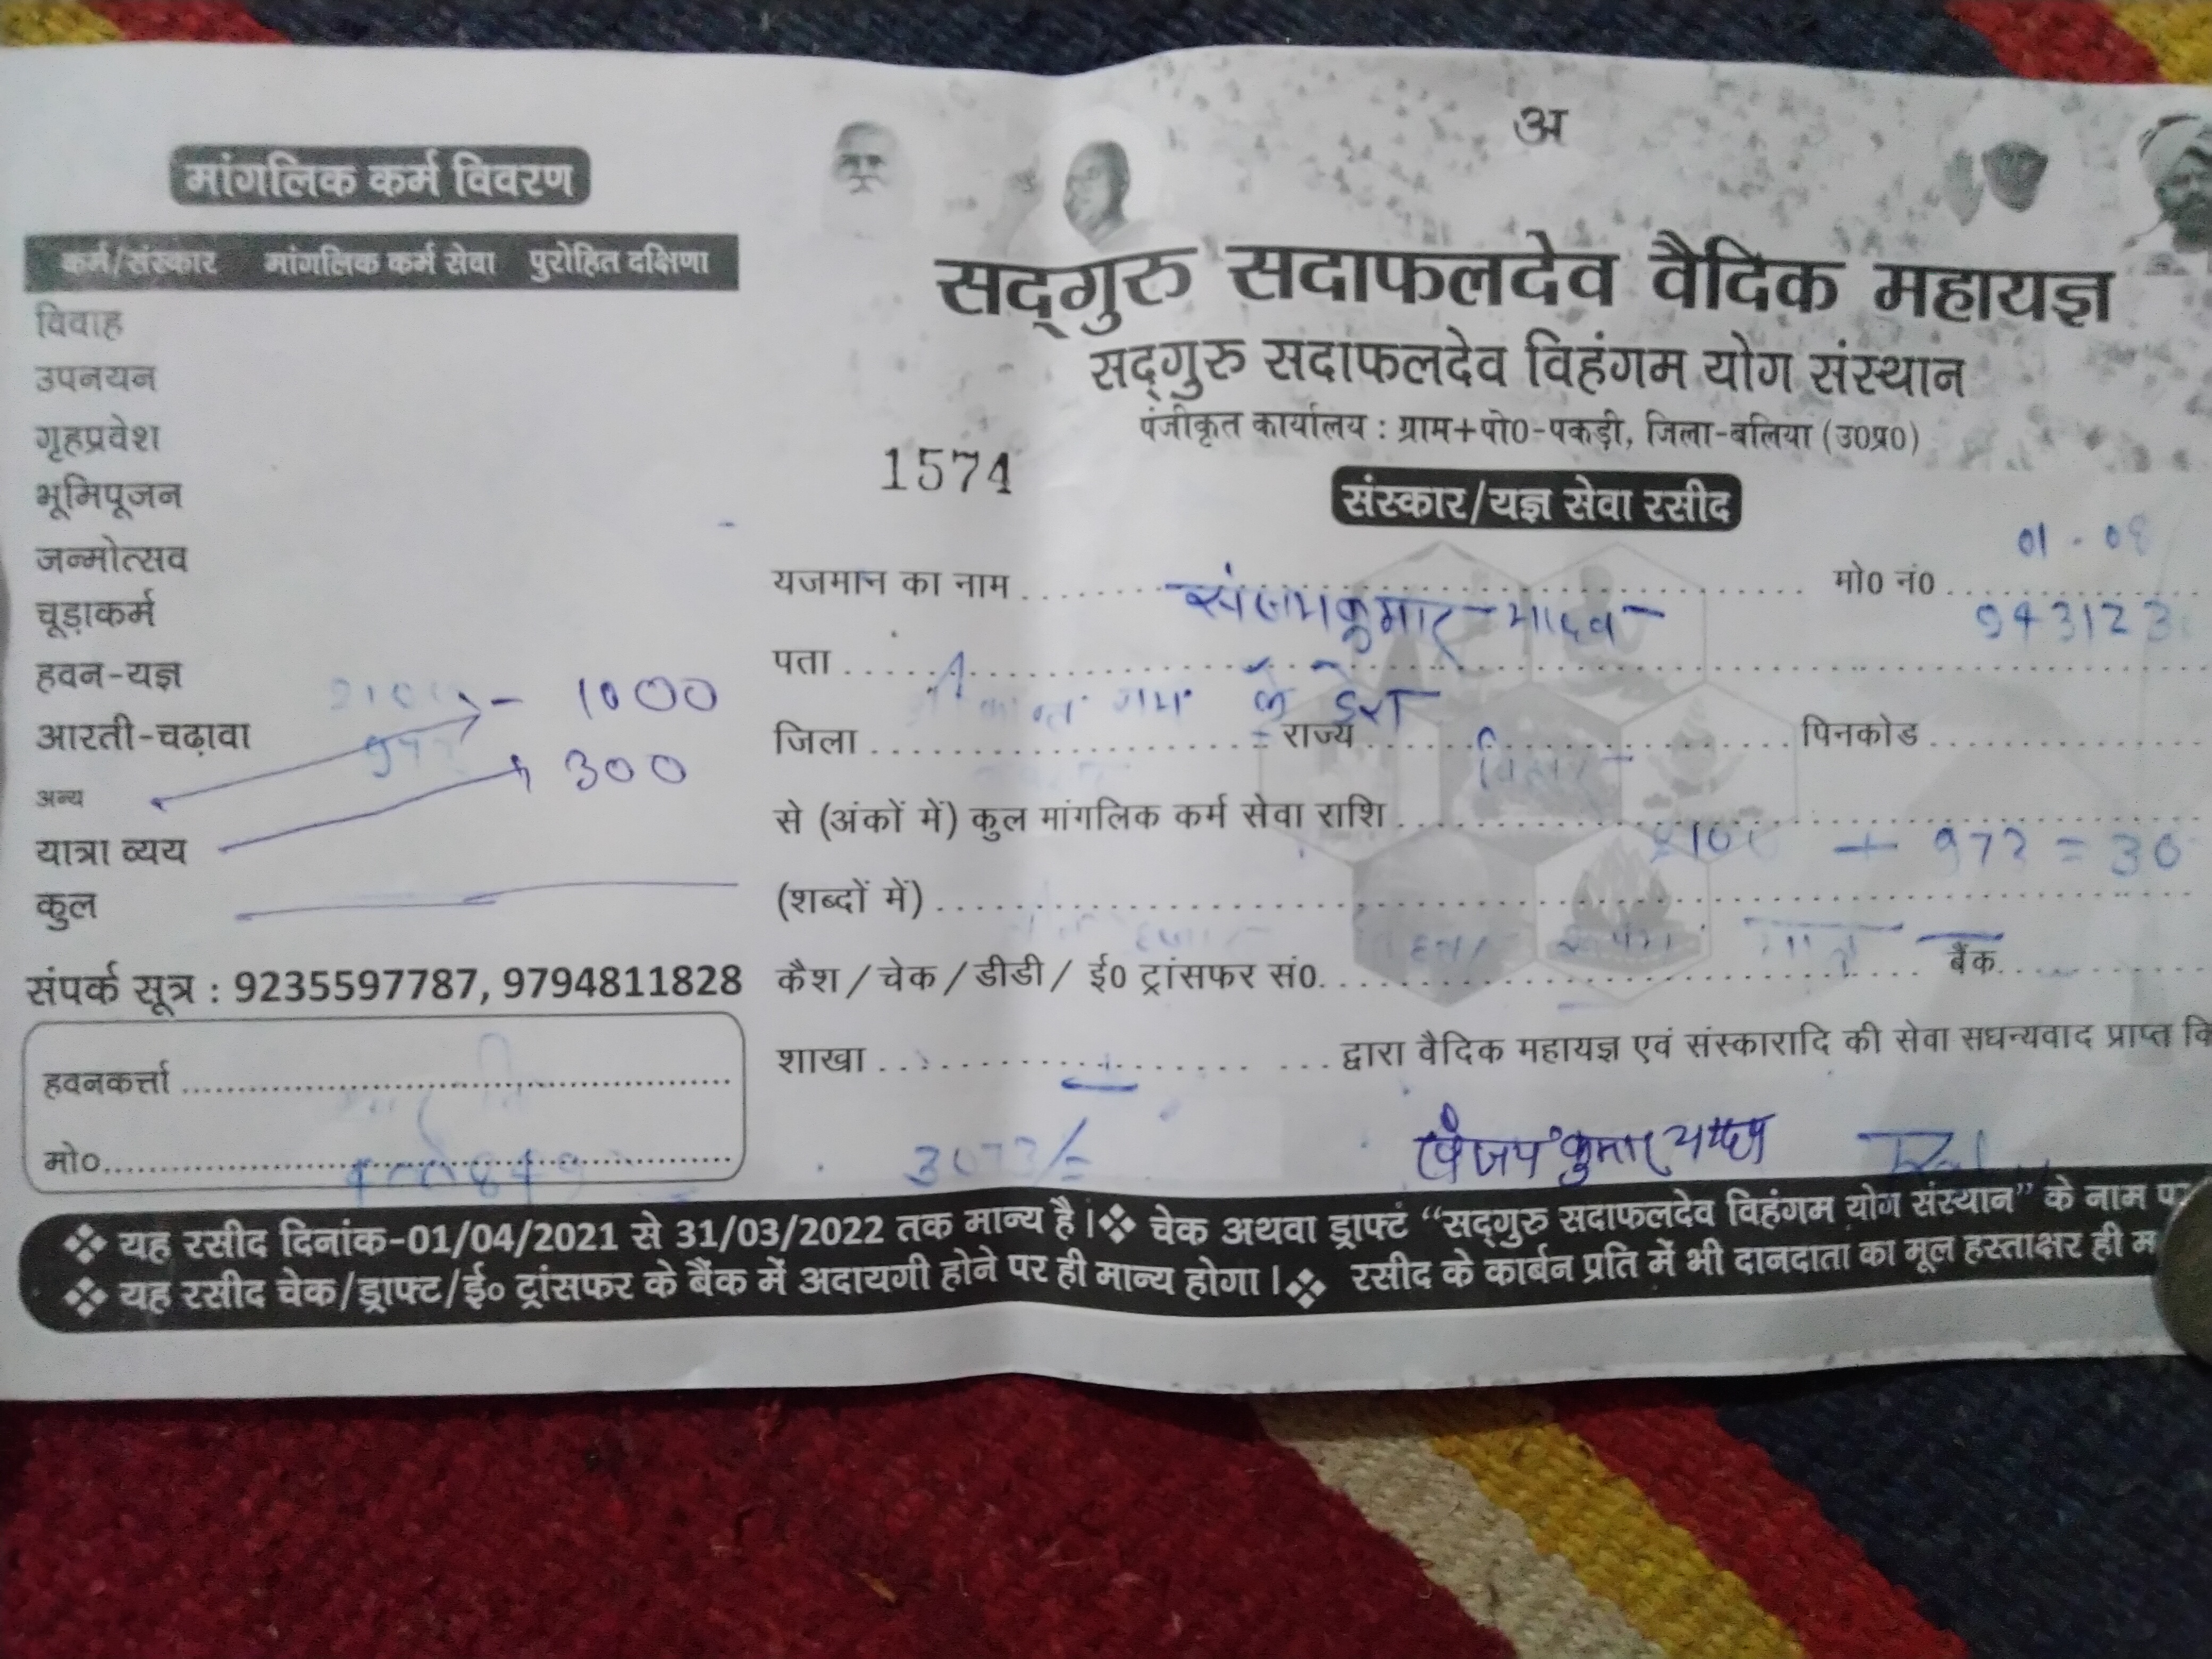 अ
मांगलिक कर्म विवरण
कर्म/संस्कार मांगलिक कर्म सेवा पुरोहित दक्षिणा
विवाह
उपनयन
गृहप्रवेश
भूमिपूजन
जन्मोत्सव
चूड़ाकर्म
हवन-यज्ञ - 1000
आरती-चढ़ावा 300
अन्य
यात्रा व्यय
कुल
संपर्क सूत्र : 9235597787, 9794811828
हवनकर्त्ता
मो०
सद्गुरु सदाफलदेव वैदिक महायज्ञ
सद्गुरु सदाफलदेव विहंगम योग संस्थान
पंजीकृत कार्यालय : ग्राम+पो0-पकड़ी, जिला-बलिया (उ0प्र0)
1574
संस्कार/यज्ञ सेवा रसीद
01 - 08
यजमान का नाम संजय कुमार यादव मो0 नं0 943123
पता के डेरा
जिला राज्य बिहार पिनकोड
से (अंकों में) कुल मांगलिक कर्म सेवा राशि + 972 = 30
(शब्दों में)
कैश / चेक / डीडी / ई0 ट्रांसफर सं0. बैंक
शाखा द्वारा वैदिक महायज्ञ एवं संस्कारादि की सेवा सधन्यवाद प्राप्त
3072/= संजय कुमार यादव
❖ यह रसीद दिनांक-01/04/2021 से 31/03/2022 तक मान्य है। ❖ चेक अथवा ड्राफ्टं “सद्गुरु सदाफलदेव विहंगम योग संस्थान” के नाम
❖ यह रसीद चेक/ड्राफ्ट/ई० ट्रांसफर के बैंक में अदायगी होने पर ही मान्य होगा। ❖ रसीद के कार्बन प्रति में भी दानदाता का मूल हस्ताक्षर ही